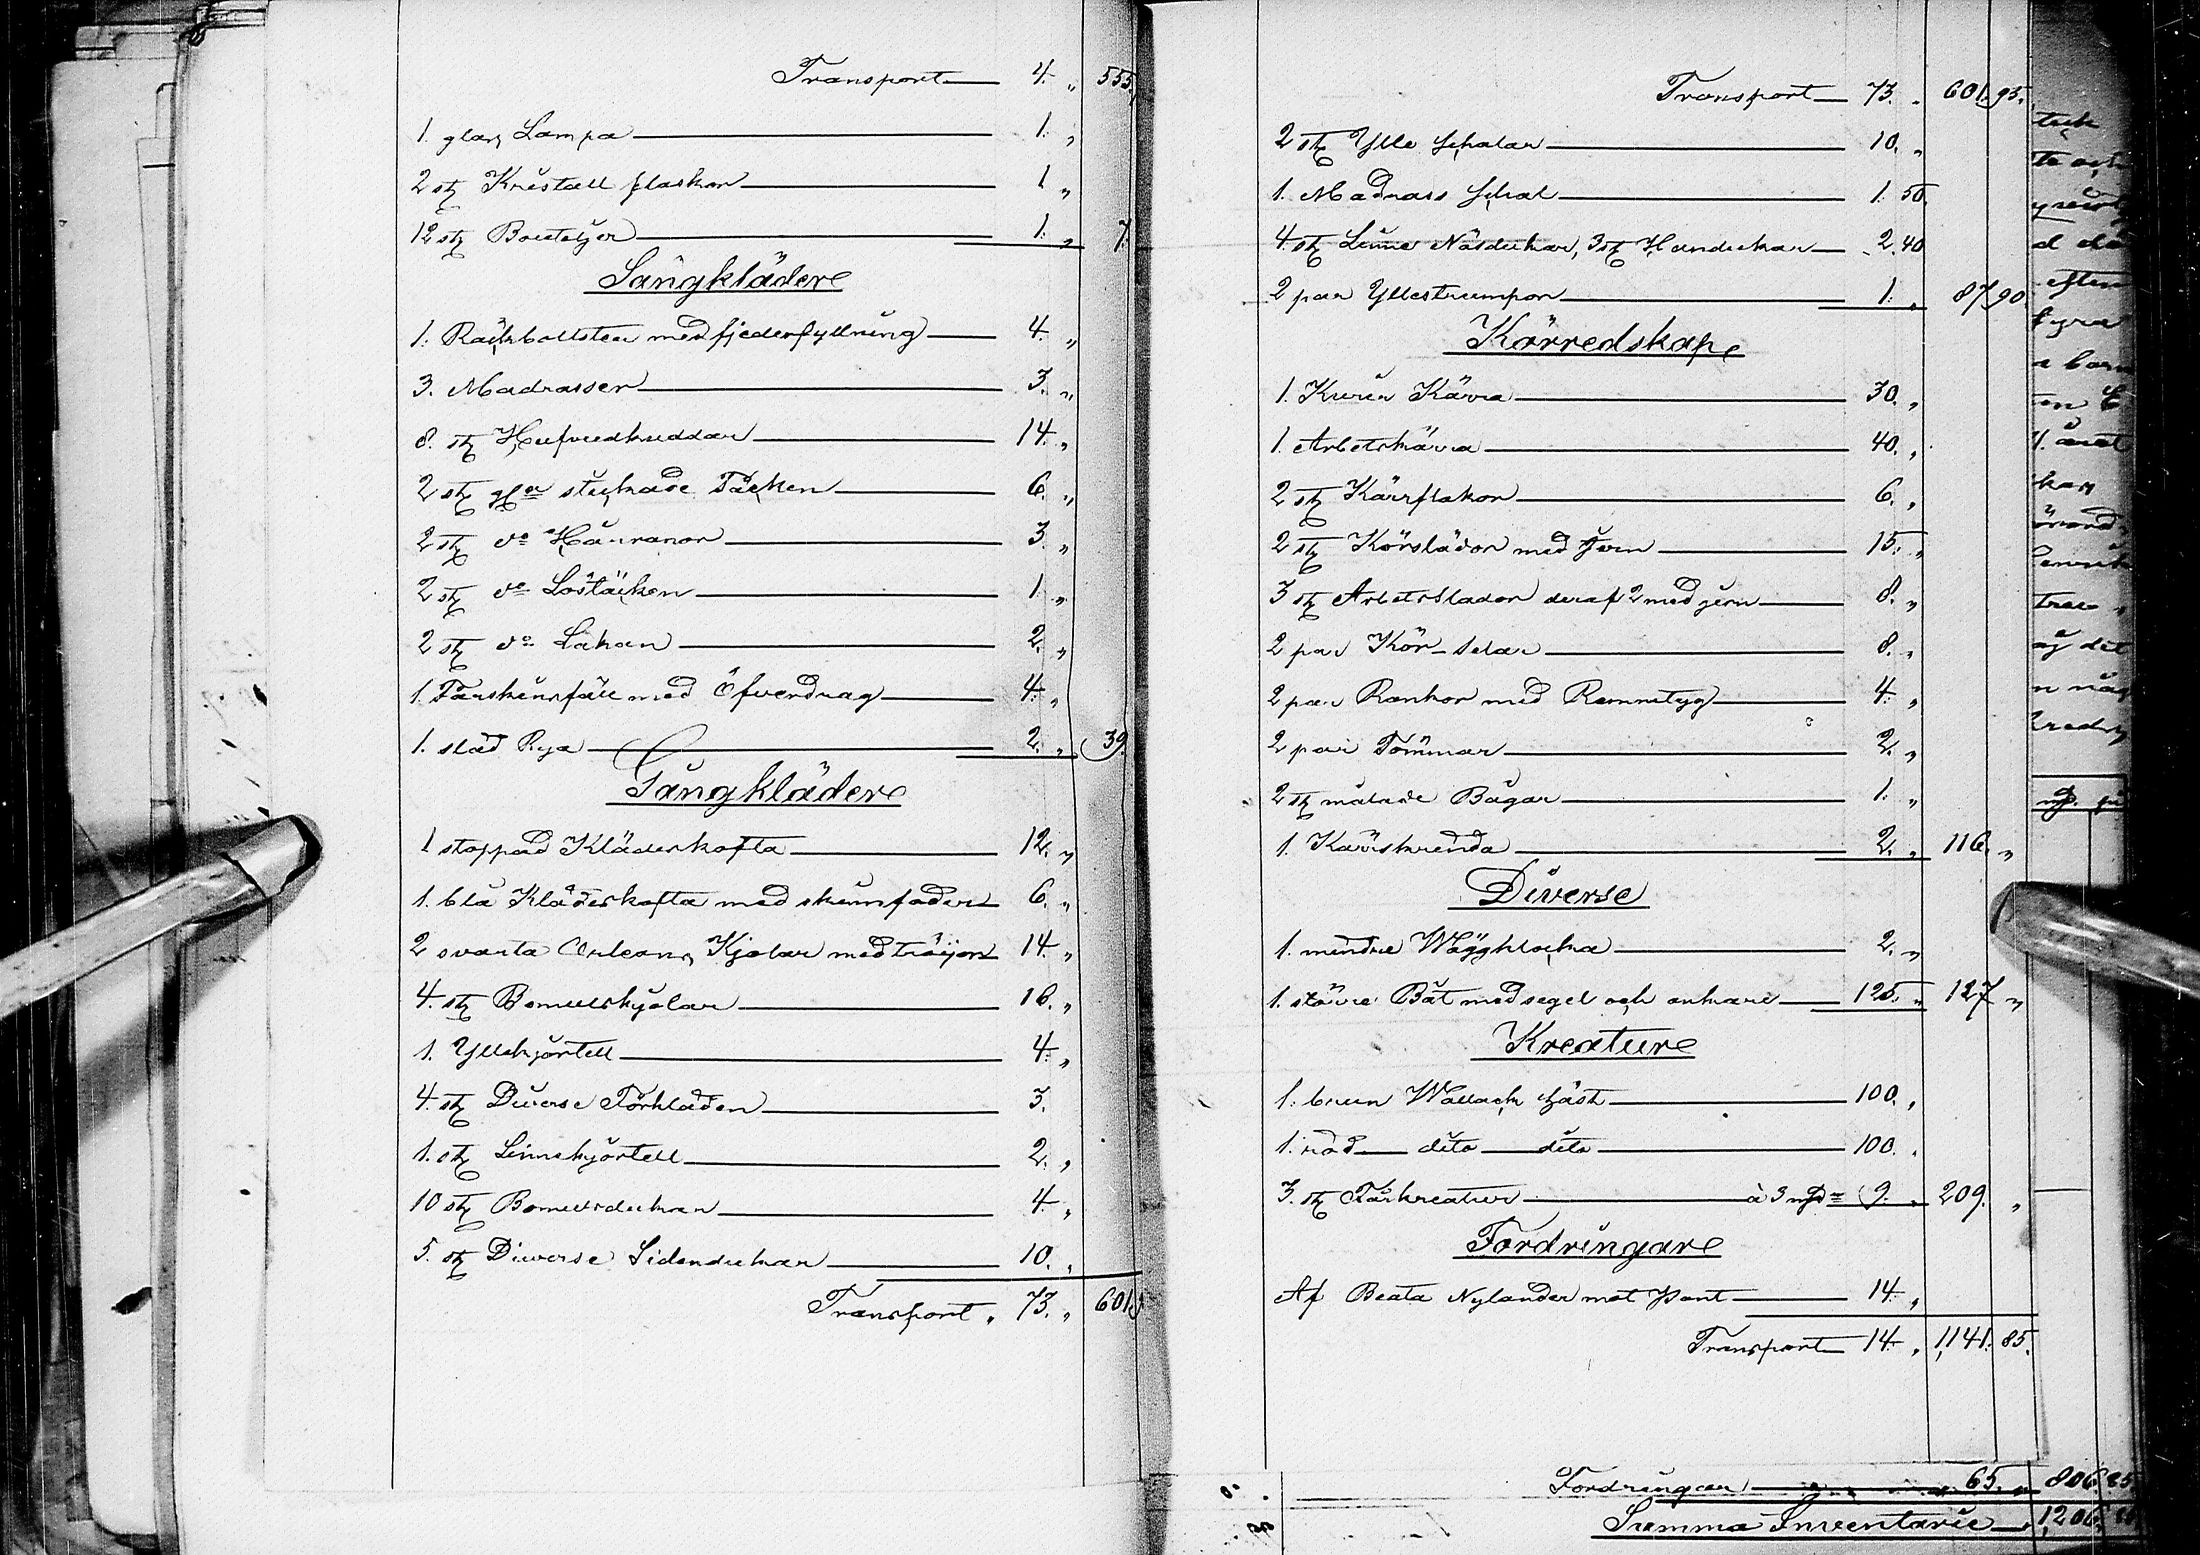 Transport 4. „ 555.
1. glas Lampa 1. „
2 st Kristall flaskor 1 „
12 st Bouteljer 1. „ 7.
Sängkläder
1. Räckbollster med fjederfyllning 4. „
3. Madrasser 3. „
8. st Hufvudkuddar 14. „
2 st gla stickade Täcken 6. „
2 st do Håuranor 3 „
2 st do Löstäcken 1 „
2 st do Lakan 2. „
1. Fårskinsfäll med Öfverdrag 4. „
1. släd Rya 2. „ 39.
Gångkläder
1 stoppad Kläderkofta 12. „
1. blå Kläderkofta med skinnfoder 6. „
2 svarta Orleans Kjolar med tröijor 14. „
4. st Bomullskjolar 16. „
1. Yllekjortell 4. „
4. st Diverse Förkläden 3.
1. st Linnekjortell 2. „
10 st Bomullsdukar 4. „
5. st Diverse Sidendukar 10. „
Transport „ 73. „ 601.
Transport 73. „ 601. 95.
2 st Ylle Schalar 10. „
1. Madrass Schal 1. 50.
4. st Linne Näsdukar, 3 st Handukar 2. 40
2 par Yllestrumpor 1. „ 87 90
Körredskap
1. Kurir Kärra 30. „
1. Arbetskärra 40. „
2 st Kärrflakor 6. „
2 st Körslädor med jern 15. „
3 st Arbetsslador deraf 2 med jern 8. „
2 par Kör-selar 8. „
2 par Rankor med Remmtyg 4. „
2 par Tömmar 2. „
2 st målade Bågar 1. „
1. Kärrskrinda 2. „ 116. „
Diverse
1. mindre Wäggklocka 2. „
1. större Båt med segel och ankare 125. „ 127 „
Kreatur
1. brun Wallack häst 100. „
1. röd dito dito 100. „
3. st Fårkreatur à 3 mk = 9. „ 209. „
Fordringar
Af Beata Nylander mot Pant 14. „
Transport 14. „ 1,141. 85.
Fordringar 65. „ 806. 85
Summa Inventarie 1,206.